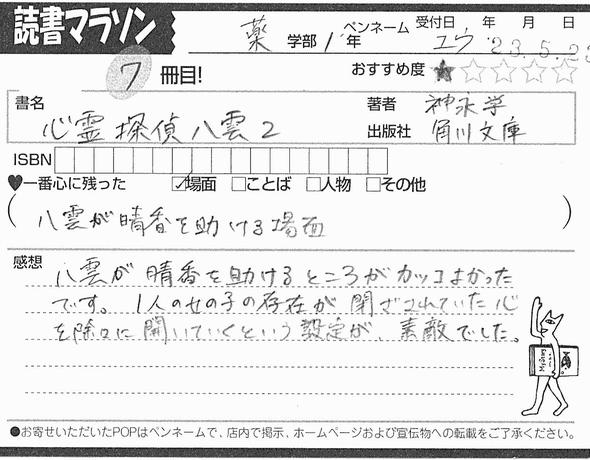 読書マラソン
薬 学部 / 1 年 ペンネーム ユウ 受付日 年 月 日 '23.5.23
7 冊目! おすすめ度 ★☆☆☆☆
書名 心霊探偵八雲2
著者 神永学
出版社 角川文庫
ISBN
♥一番心に残った ☑場面 □ことば □人物 □その他
(八雲が晴香を助ける場面)
感想
八雲が晴香を助けるところがカッコよかった
です。1人の女の子の存在が閉ざされていた心
を除々に開いていくという設定が、素敵でした。
●お寄せいただいたPOPはペンネームで、店内で掲示、ホームページおよび宣伝物への転載をご了承ください。